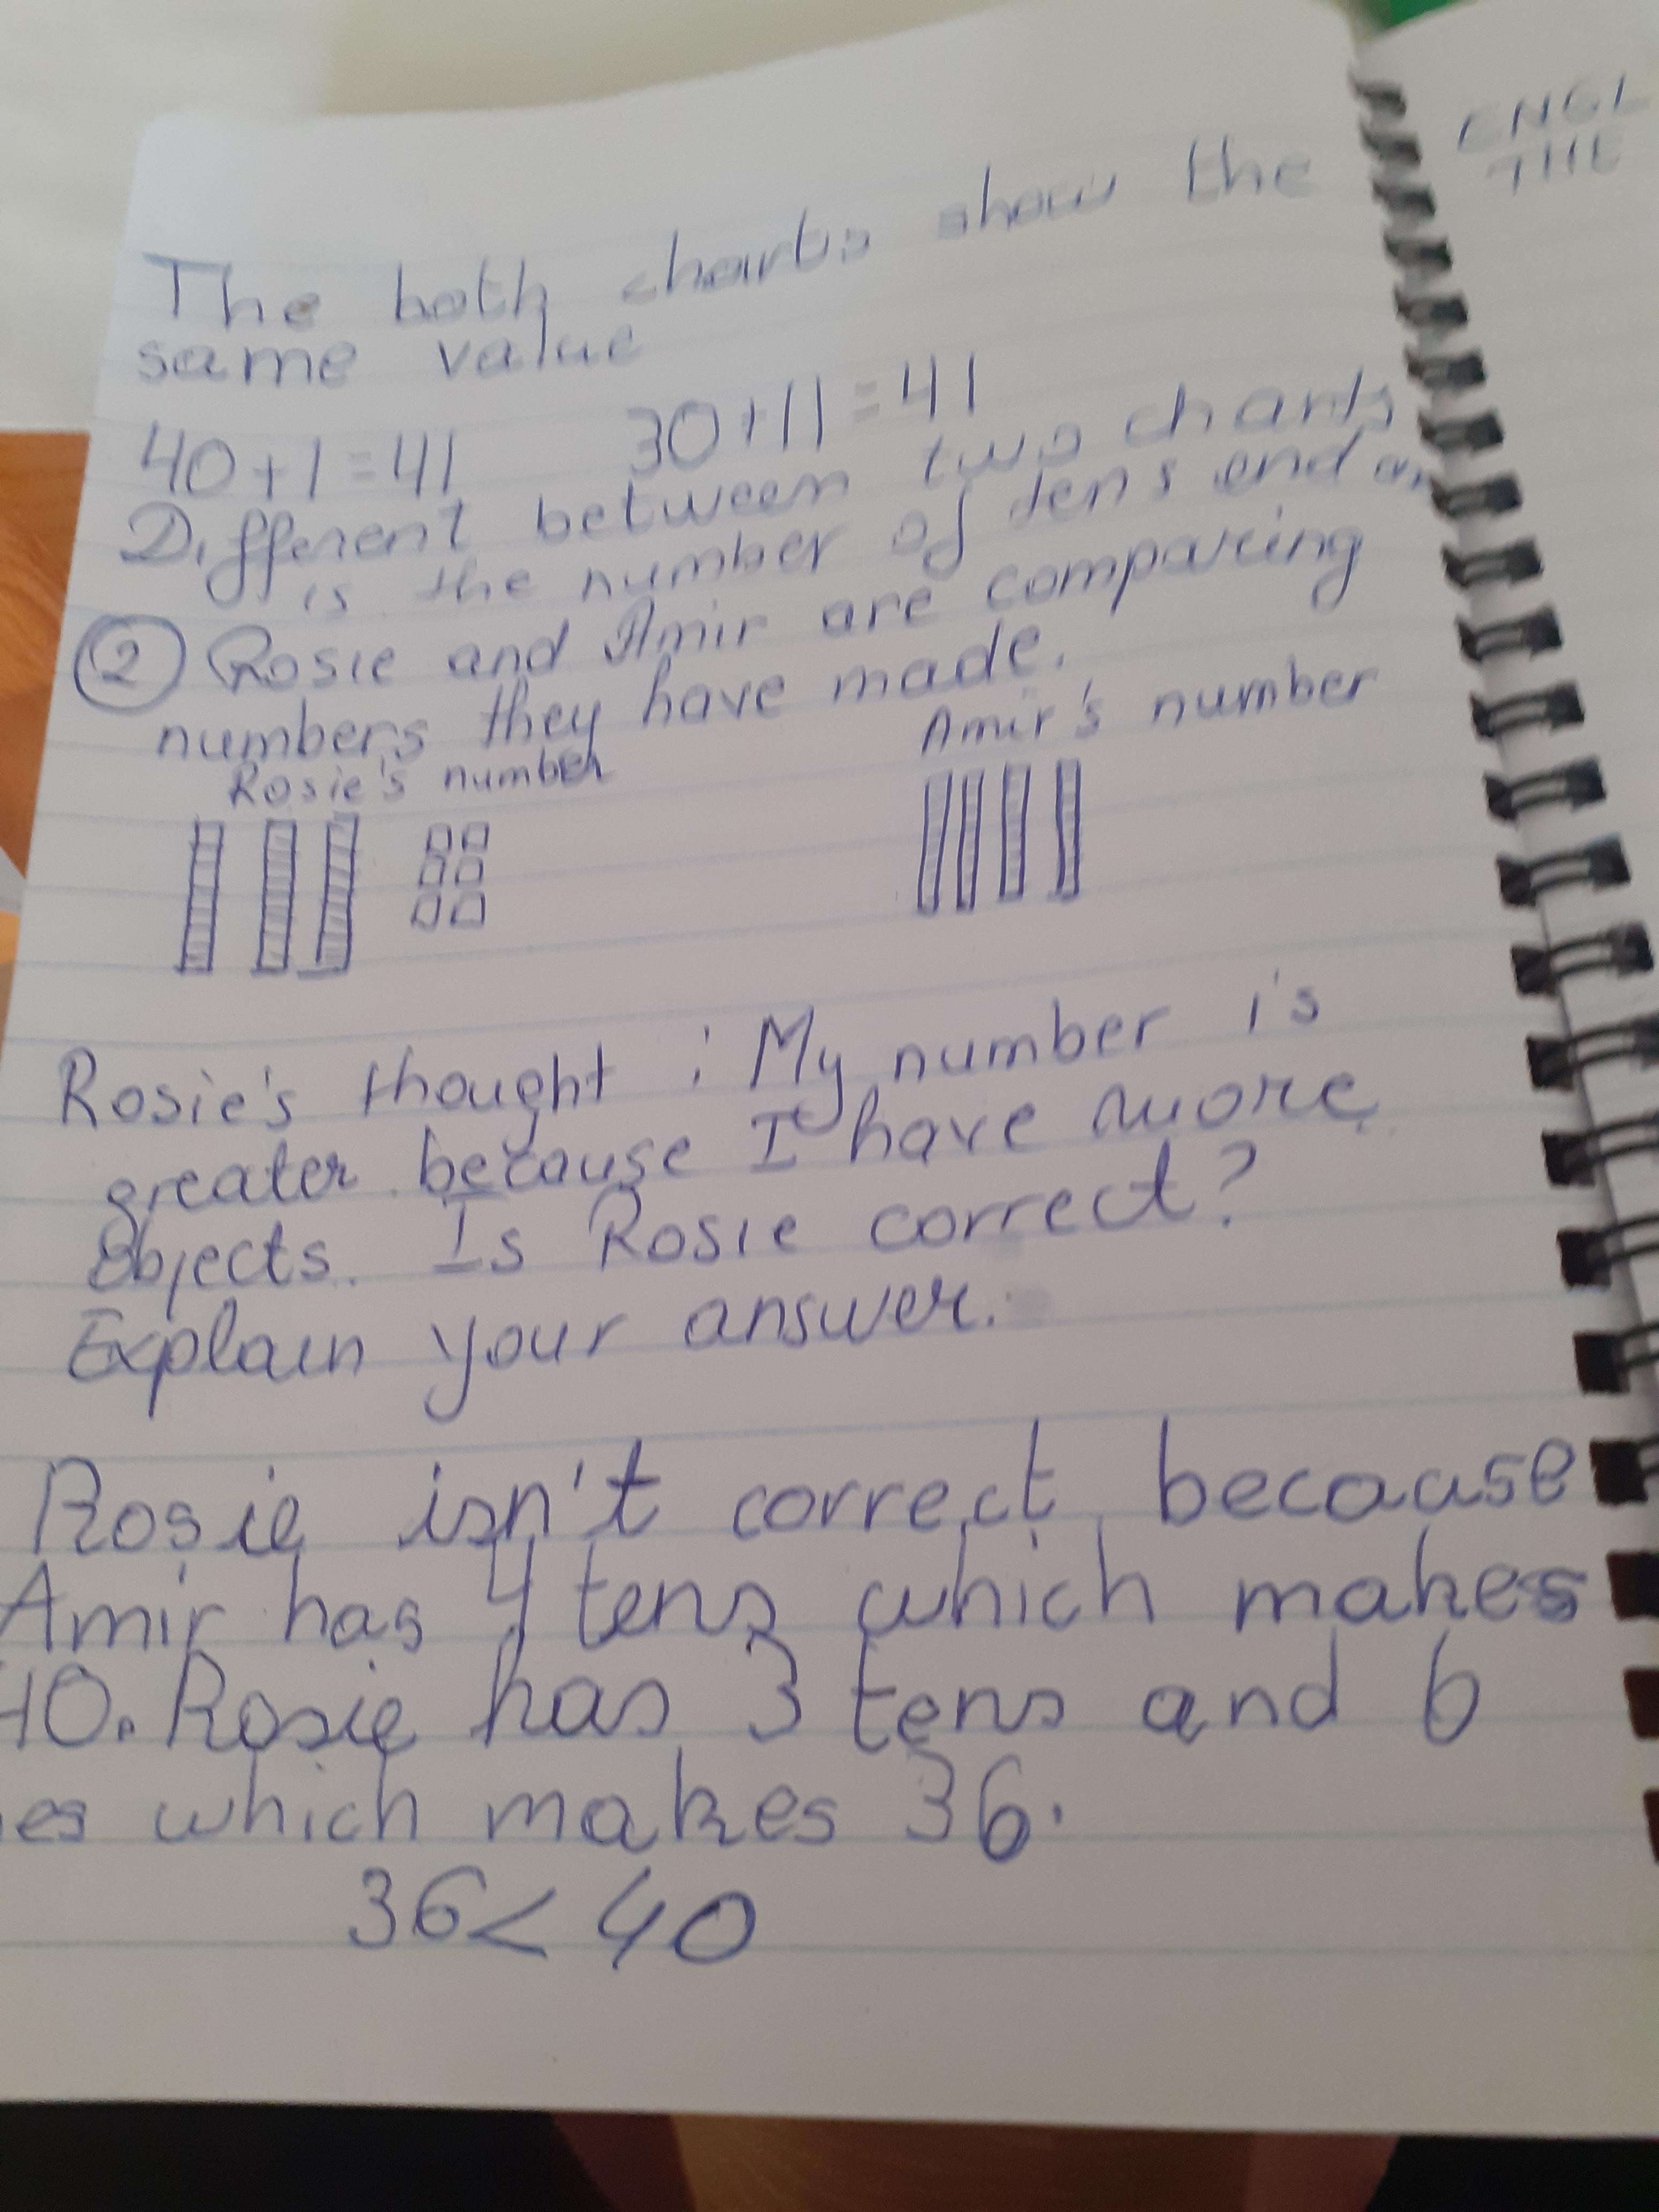 The both charts show the
same value
40+1=41 30+11=41
Different between two charts
is the number of tens and on
② Rosie and Amir are comparing
numbers they have made.
Rosie's number Amir's number
Rosie's thought : My number is
greater because I have more
Objects. Is Rosie correct?
Explain your answer.
Rosie isn't correct becaause
Amir has 4 tens which makes
40. Rosie has 3 tens and 6
es which makes 36.
36 < 40
ENGL
THE